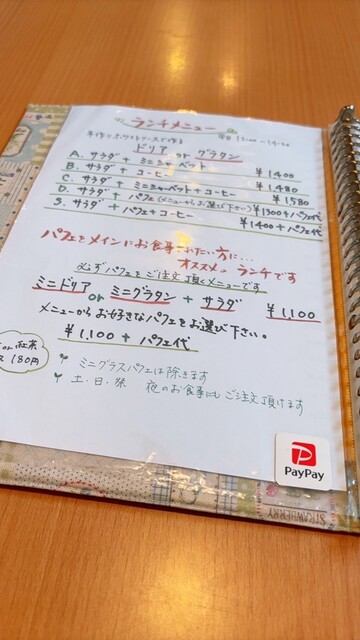 ランチメニュー
手作りホワイトソースで作る
ドリア or グラタン
A. サラダ + ミニシャーベット ¥1400
B. サラダ + コーヒー ¥1,480
C. サラダ + ミニシャーベット + コーヒー ¥1,580
D. サラダ + パフェ(メニューからお選び下さい) ¥1300+パフェ代
S. サラダ + パフェ + コーヒー ¥1400+パフェ代
パフェをメインにお食事されたい方に...
オススメのランチです
必ずパフェをご注文頂くメニューです
ミニドリア or ミニグラタン + サラダ ¥1,100
メニューからお好きなパフェをお選び下さい。
¥1,100 + パフェ代
or 紅茶
180円
ミニグラスパフェは除きます
土・日・祭 夜のお食事にもご注文頂けます
PayPay
STRAWBERRY